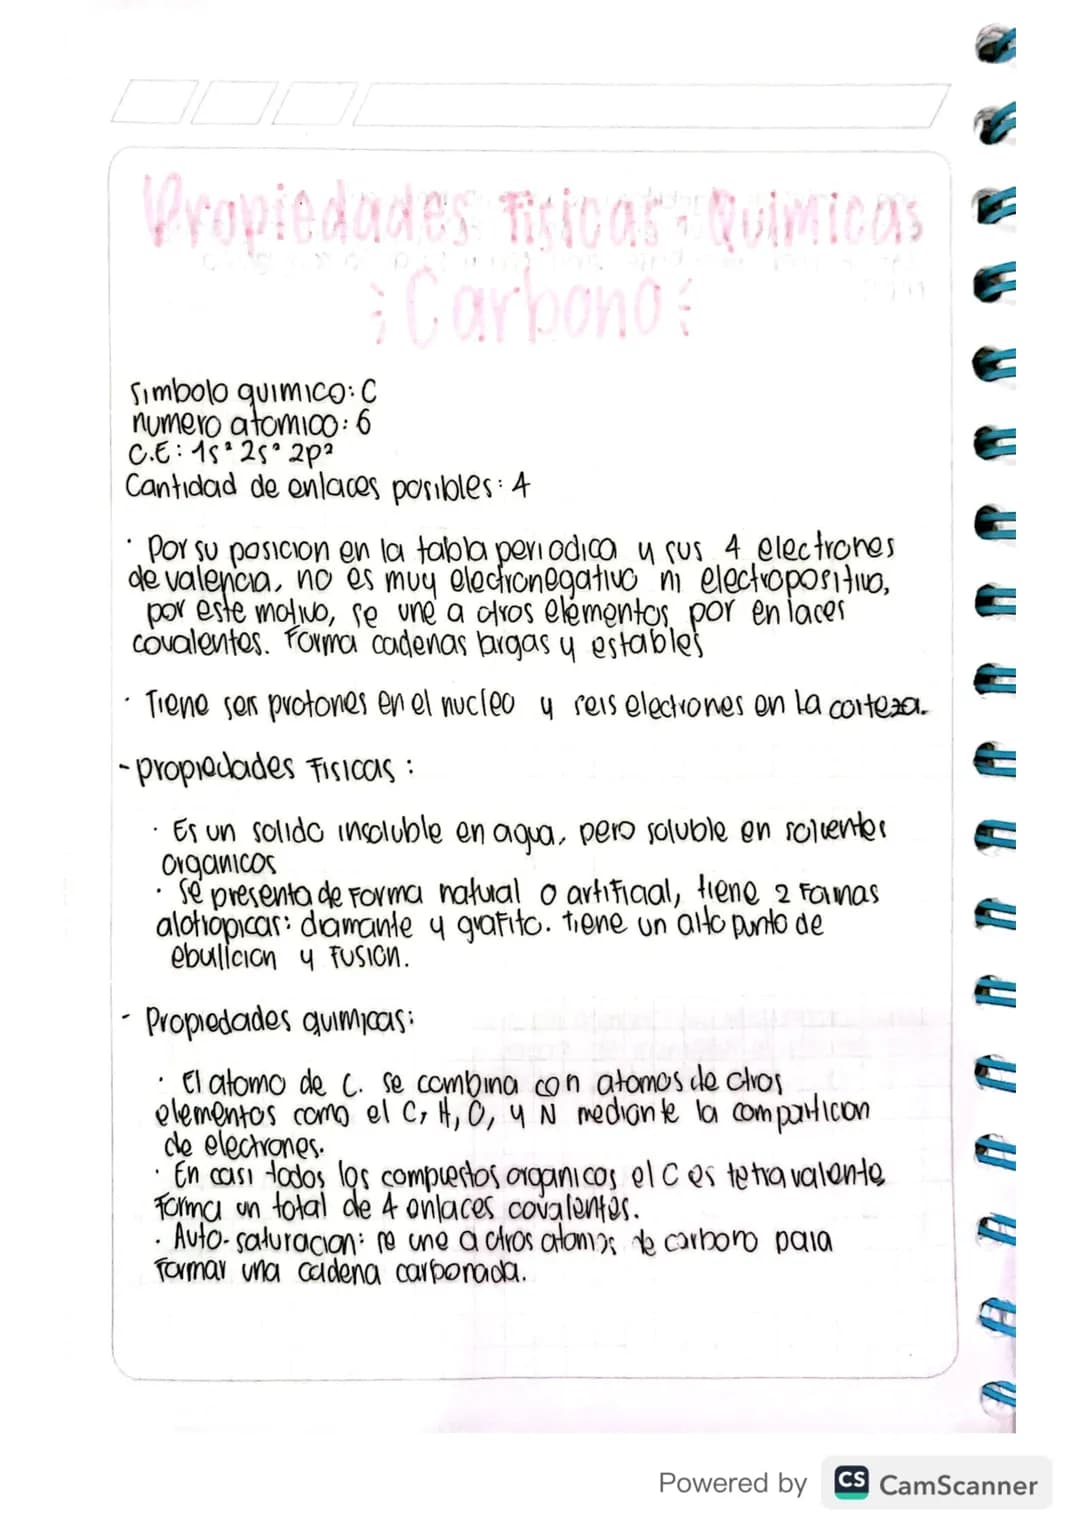 Propiedades Fisicas-Quimicas
Carbono
Simbolo quimico: C
numero atomico: 6
C.E: 1s² 2s² 2p²
Cantidad de enlaces posibles: 4
· Por su posicion en la tabla periodica y sus 4 electrones
de valencia, no es muy electronegativo ni electropositivo,
por este motivo, se une a otros elementos por enlaces
covalentes. Forma cadenas largas y estables
· Tiene seis protones en el nucleo y seis electrones en la corteza.
- propiedades Fisicas:
· Es un solido insoluble en agua, pero soluble en solventes
organicos
· Se presenta de Forma natural o artificial, tiene 2 Formas
alotropicas: diamante y grafito. tiene un alto punto de
ebullicion y Fusion.
- Propiedades quimicas:
· El atomo de C. se combina con atomos de otros
elementos como el C, H, O, y N mediante la comparticion
de electrones.
· En casi todos los compuestos organicos el C es tetravalente
Forma un total de 4 enlaces covalentes.
· Auto-saturacion: se une a otros atomos de carbono para
Formar una cadena carbonada.
Powered by CS CamScanner